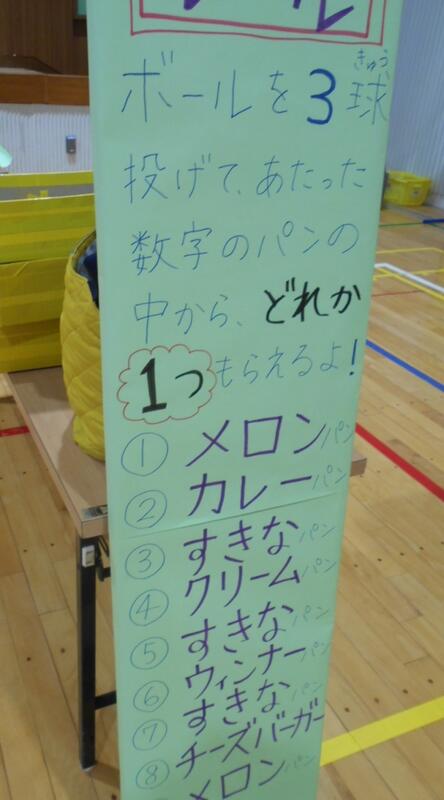 ボールを3球
きゅう
投げて、あたった
数字のパンの
中から、どれか
1つもらえるよ!
① メロンパン
② カレーパン
③ すきなパン
④ クリームパン
⑤ すきなパン
⑥ ウィンナーパン
⑦ すきなパン
⑧ チーズバーガー
メロンパン